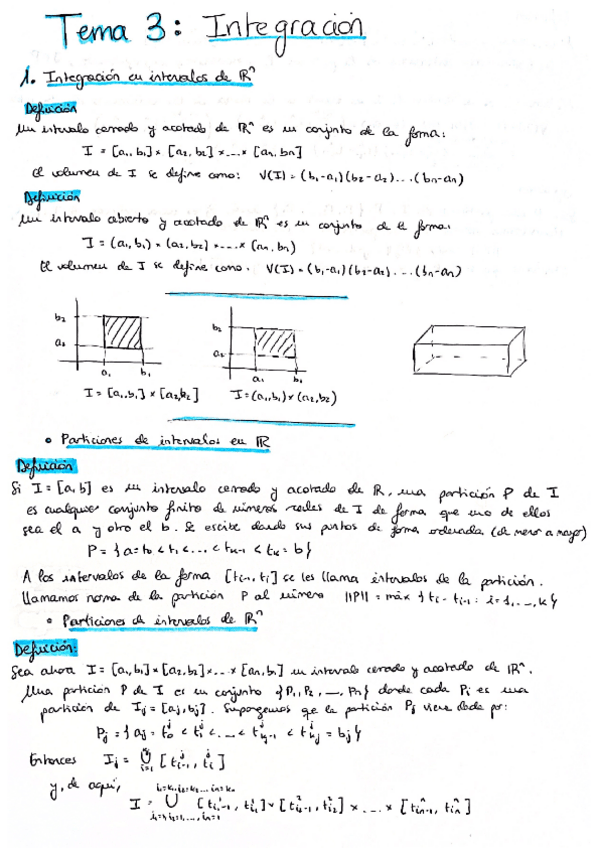 Tema 3: Integración
1. Integración en intervalos de ℝⁿ
Definición
Un intervalo cerrado y acotado de ℝⁿ es un conjunto de la forma:
I = [a₁, b₁] × [a₂, b₂] × ... × [aₙ, bₙ]
El volumen de I se define como: V(I) = (b₁-a₁)(b₂-a₂)...(bₙ-aₙ)
Definición
Un intervalo abierto y acotado de ℝⁿ es un conjunto de la forma:
I = (a₁, b₁) × (a₂, b₂) × ... × (aₙ, bₙ)
El volumen de I se define como: V(I) = (b₁-a₁)(b₂-a₂)...(bₙ-aₙ)
b₂
a₂
a₁ b₁
I = [a₁, b₁] × [a₂, b₂]
b₂
a₂
a₁ b₁
I = (a₁, b₁) × (a₂, b₂)
• Particiones de intervalos en ℝ
Definición
Si I = [a, b] es un intervalo cerrado y acotado de ℝ, una partición P de I
es cualquier conjunto finito de números reales de I de forma que uno de ellos
sea el a y otro el b. Se escribe dando sus puntos de forma ordenada (de menor a mayor)
P = {a = t₀ < t₁ < ... < tₖ₋₁ < tₖ = b}
A los intervalos de la forma [tᵢ₋₁, tᵢ] se les llama intervalos de la partición.
Llamamos norma de la partición P al número ||P|| = máx {tᵢ - tᵢ₋₁ : i = 1, ..., k}
• Particiones de intervalos de ℝⁿ
Definición:
Sea ahora I = [a₁, b₁] × [a₂, b₂] × ... × [aₙ, bₙ] un intervalo cerrado y acotado de ℝⁿ.
Una partición P de I es un conjunto {P₁, P₂, ..., Pₙ} donde cada Pⱼ es una
partición de Iⱼ = [aⱼ, bⱼ]. Supongamos que la partición Pⱼ viene dada por:
Pⱼ = {aⱼ = t₀ʲ < t₁ʲ < ... < t_{kⱼ-1}ʲ < t_{kⱼ}ʲ = bⱼ}
Entonces Iⱼ = ⋃_{i=1}^{kⱼ} [tᵢ₋₁ʲ, tᵢʲ]
y, de aquí,
I = ⋃_{i₁=1, i₂=1, ..., iₙ=1}^{i₁=k₁, i₂=k₂, ... iₙ=kₙ} [t_{i₁-1}¹, t_{i₁}¹] × [t_{i₂-1}², t_{i₂}²] × ... × [t_{iₙ-1}ⁿ, t_{iₙ}ⁿ]